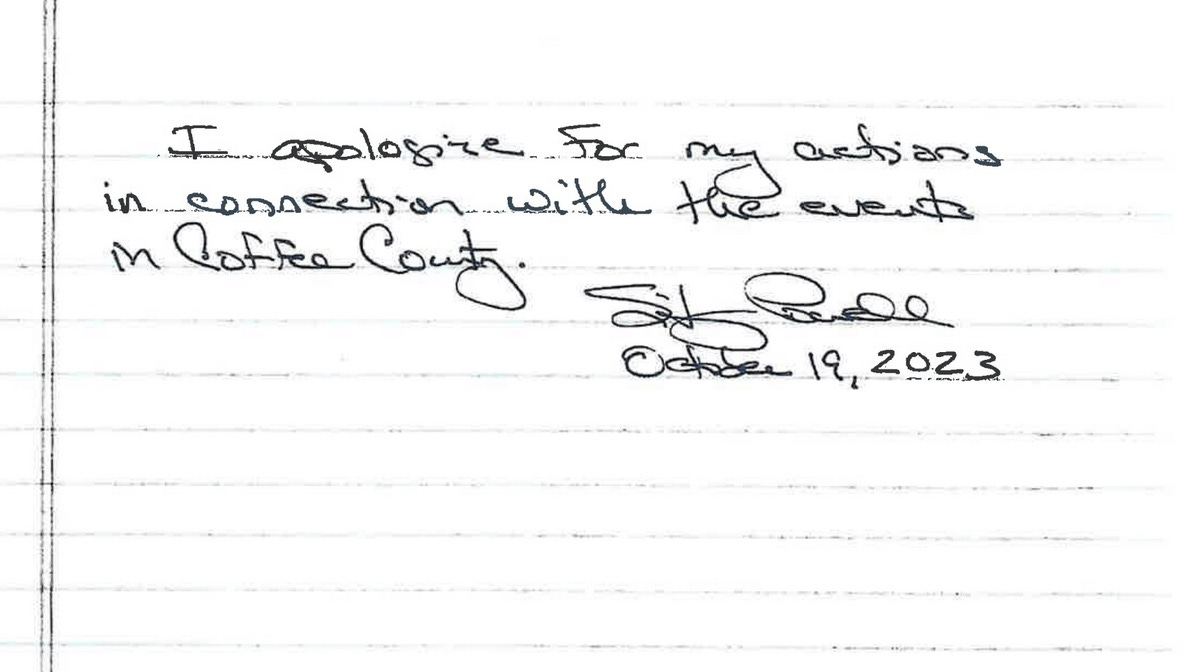 I apologize for my actions
in connection with the events
in Coffee County.
Sidney Powell
October 19, 2023